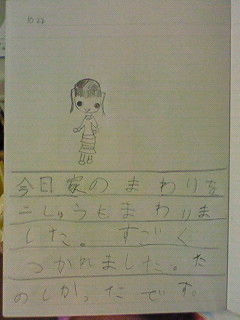 今日家のまわりを
二しゅうもまわりま
した。すごく
つかれました。た
のしかったです。